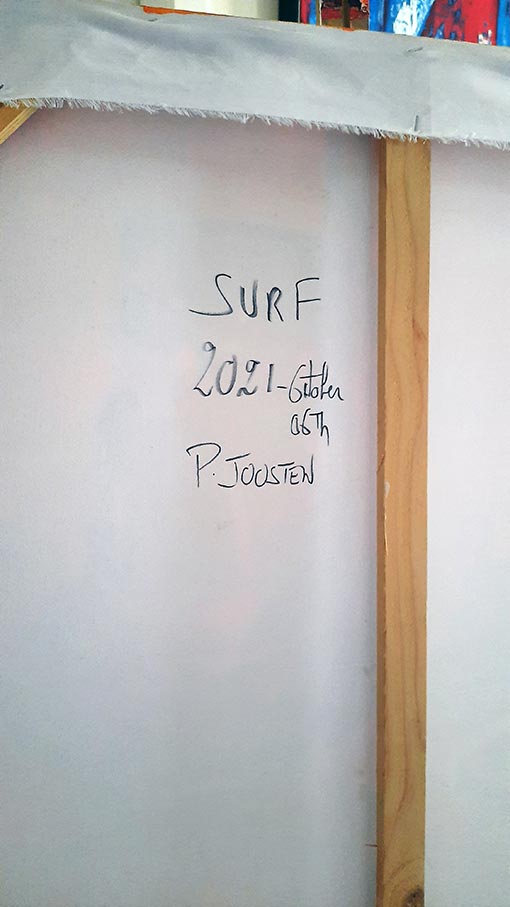 SURF
2021 - October
06Th
P. JOOSTEN